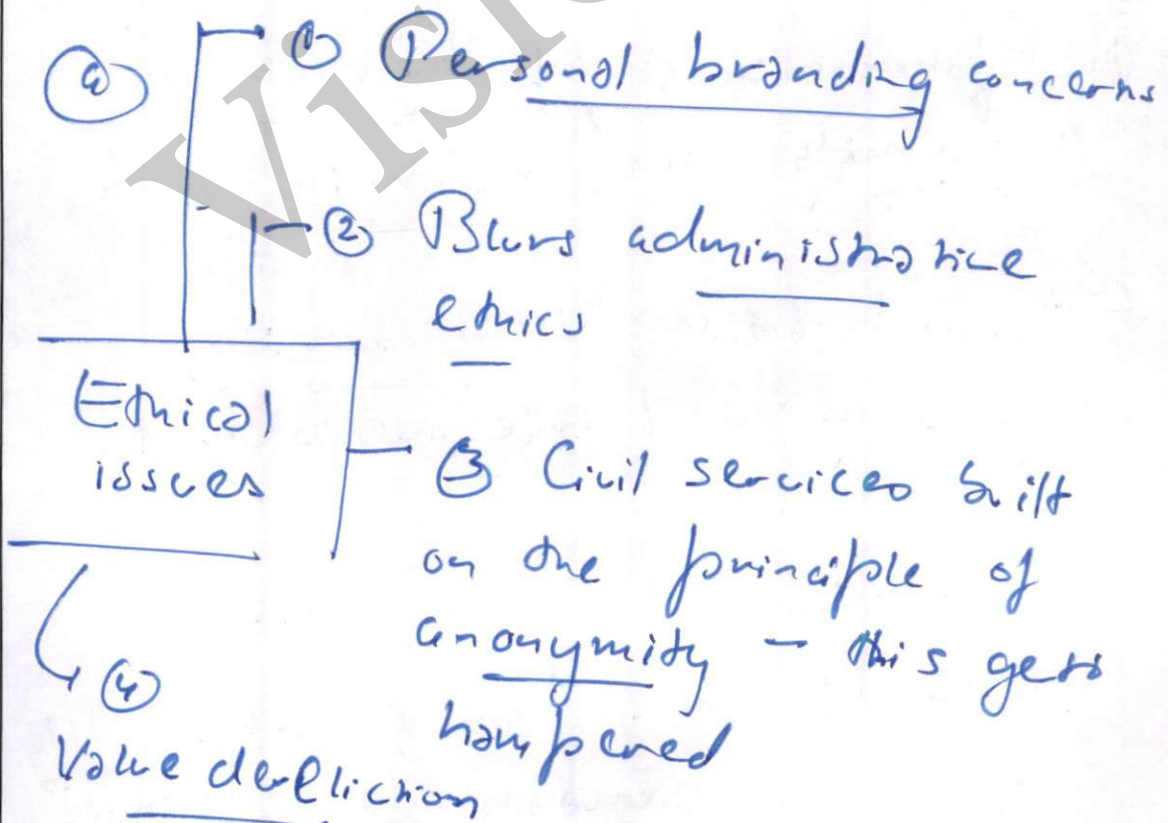 (a)
① Personal branding concerns
② Blurs administrative
ethics
Ethical
issues
③ Civil services built
on the principle of
anonymity - this gets
hampered
④
Value derliction
Visi